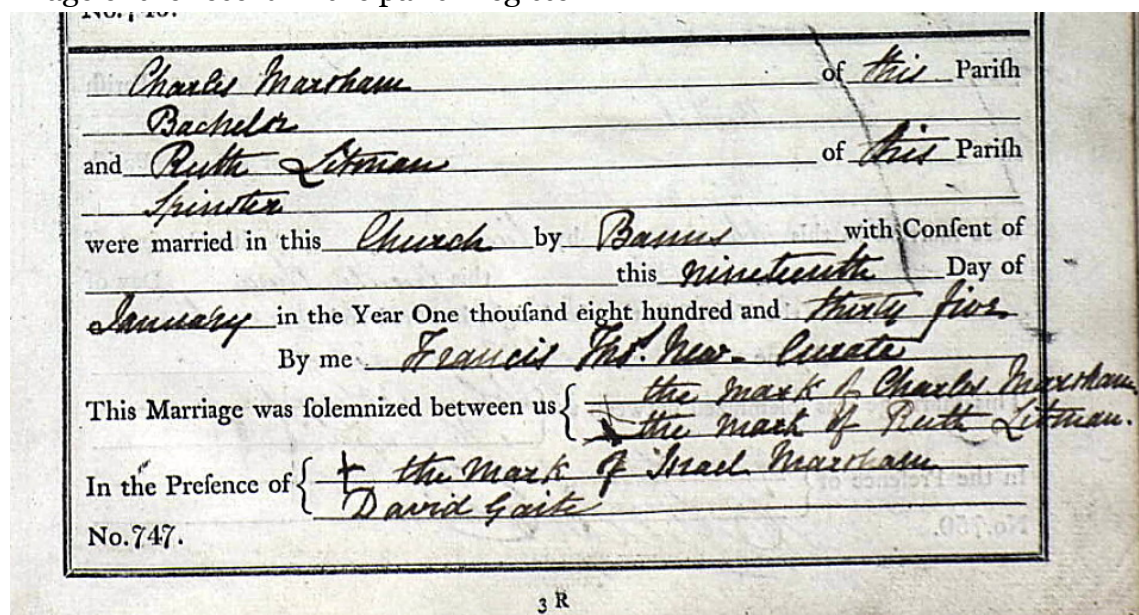 Charles Marsham of this Pariſh
Bachelor
and Ruth Litman of this Pariſh
Spinster
were married in this Church by Banns with Conſent of
this nineteenth Day of
January in the Year One thouſand eight hundred and thirty five
By me Francis Thos. New - Curate
This Marriage was ſolemnized between us { the mark of Charles Marsham
the mark of Ruth Litman.
In the Preſence of { + the mark of Israel Marsham
David Gaite
No. 747.
3 R